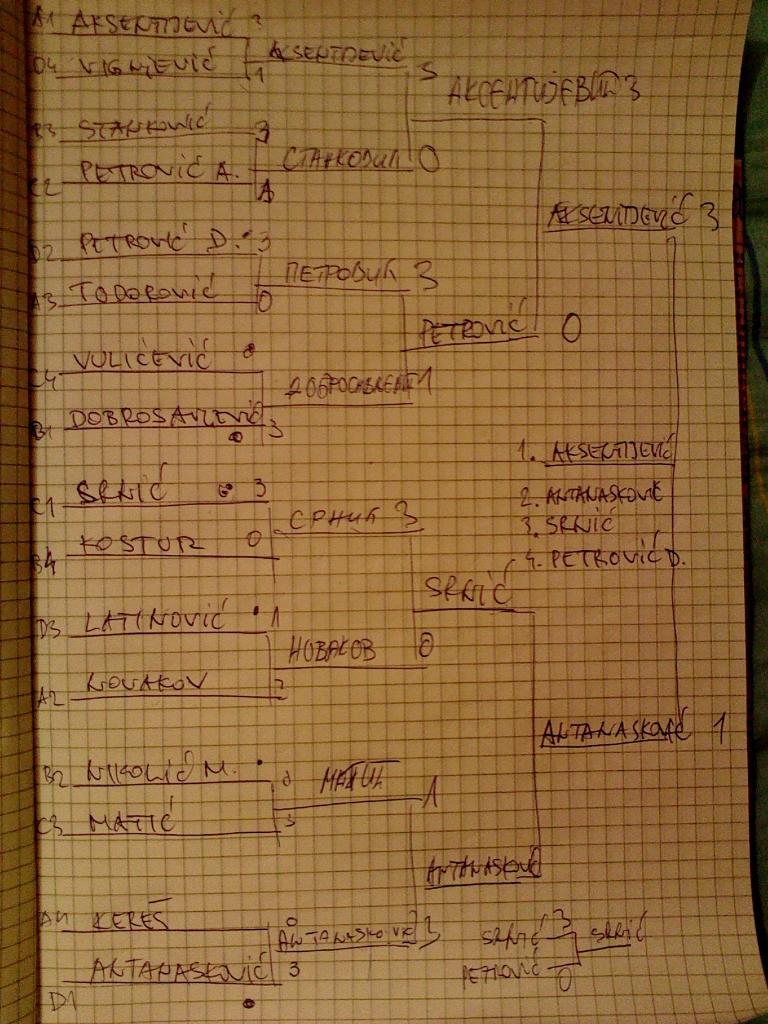 A1 AKSENTIJEVIĆ 3
D4 VIGNJEVIĆ 1
AKSENTIJEVIĆ 3
B3 STANKOVIĆ 3
C2 PETROVIĆ A. 1
СТАНКОВИЋ 0
АКСЕНТИЈЕВИЋ 3
D2 PETROVIĆ D. 3
A3 TODOROVIĆ 0
ПЕТРОВИЋ 3
C4 VULIĆEVIĆ
B1 DOBROSAVLJEVIĆ 3
1
PETROVIĆ 0
AKSENTIJEVIĆ 3
C1 SRNIĆ 3
B4 KOSTUR 0
СРНИЋ 3
D3 LATINOVIĆ 1
A2 NOVAKOV 3
НОВАКОВ 0
SRNIĆ
B2 NIKOLIĆ M. 0
C3 MATIĆ 3
МАТИЋ 1
A4 KEREŠ 0
D1 ANTANASKOVIĆ 3
ANTANASKOVIĆ 3
ANTANASKOVIĆ
ANTANASKOVIĆ 1
1. AKSENTIJEVIĆ
2. ANTANASKOVIĆ
3. SRNIĆ
4. PETROVIĆ D.
SRNIĆ 3
PETROVIĆ 0
SRNIĆ